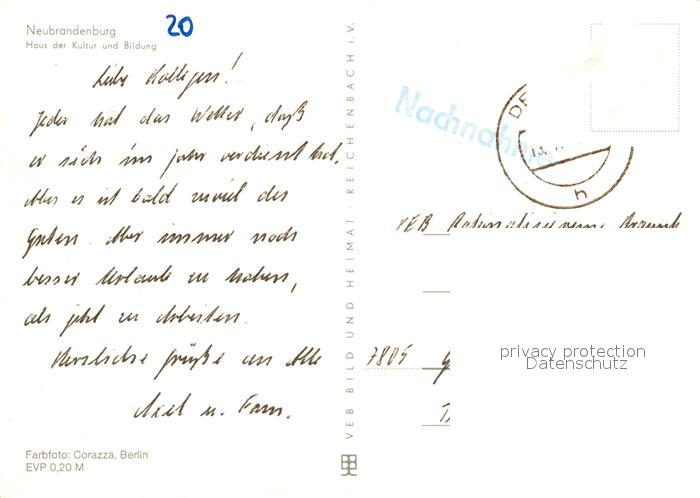 Neubrandenburg
Haus der Kultur und Bildung
20
Liebe Kollegen!
Jeder hat das Wetter, daß
er sich im Jahr verdient hat.
Aber es ist bald zuviel des
Guten. Aber immer noch
besser Urlaub zu haben,
als jetzt zu Arbeiten.
Herzliche Grüße an Alle
Axel u. Fam.
Farbfoto: Corazza, Berlin
EVP 0,20 M
VEB BILD UND HEIMAT · REICHENBACH i. V.
Nachnahme
DE
h
VEB Rationalisierung Braunk
7805
privacy protection
Datenschutz